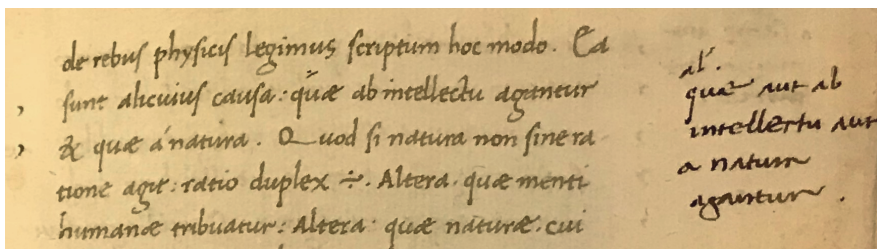 de rebus physicis legimus scriptum hoc modo. Ea
sunt alicuius causa: quæ ab intellectu agantur
& quæ á natura. Quod si natura non sine ra
tione agit: ratio duplex ÷. Altera. quæ menti
humanæ tribuatur: Altera. quæ naturæ. cui
al'.
quæ aut ab
intellectu aut
a natura
agantur.